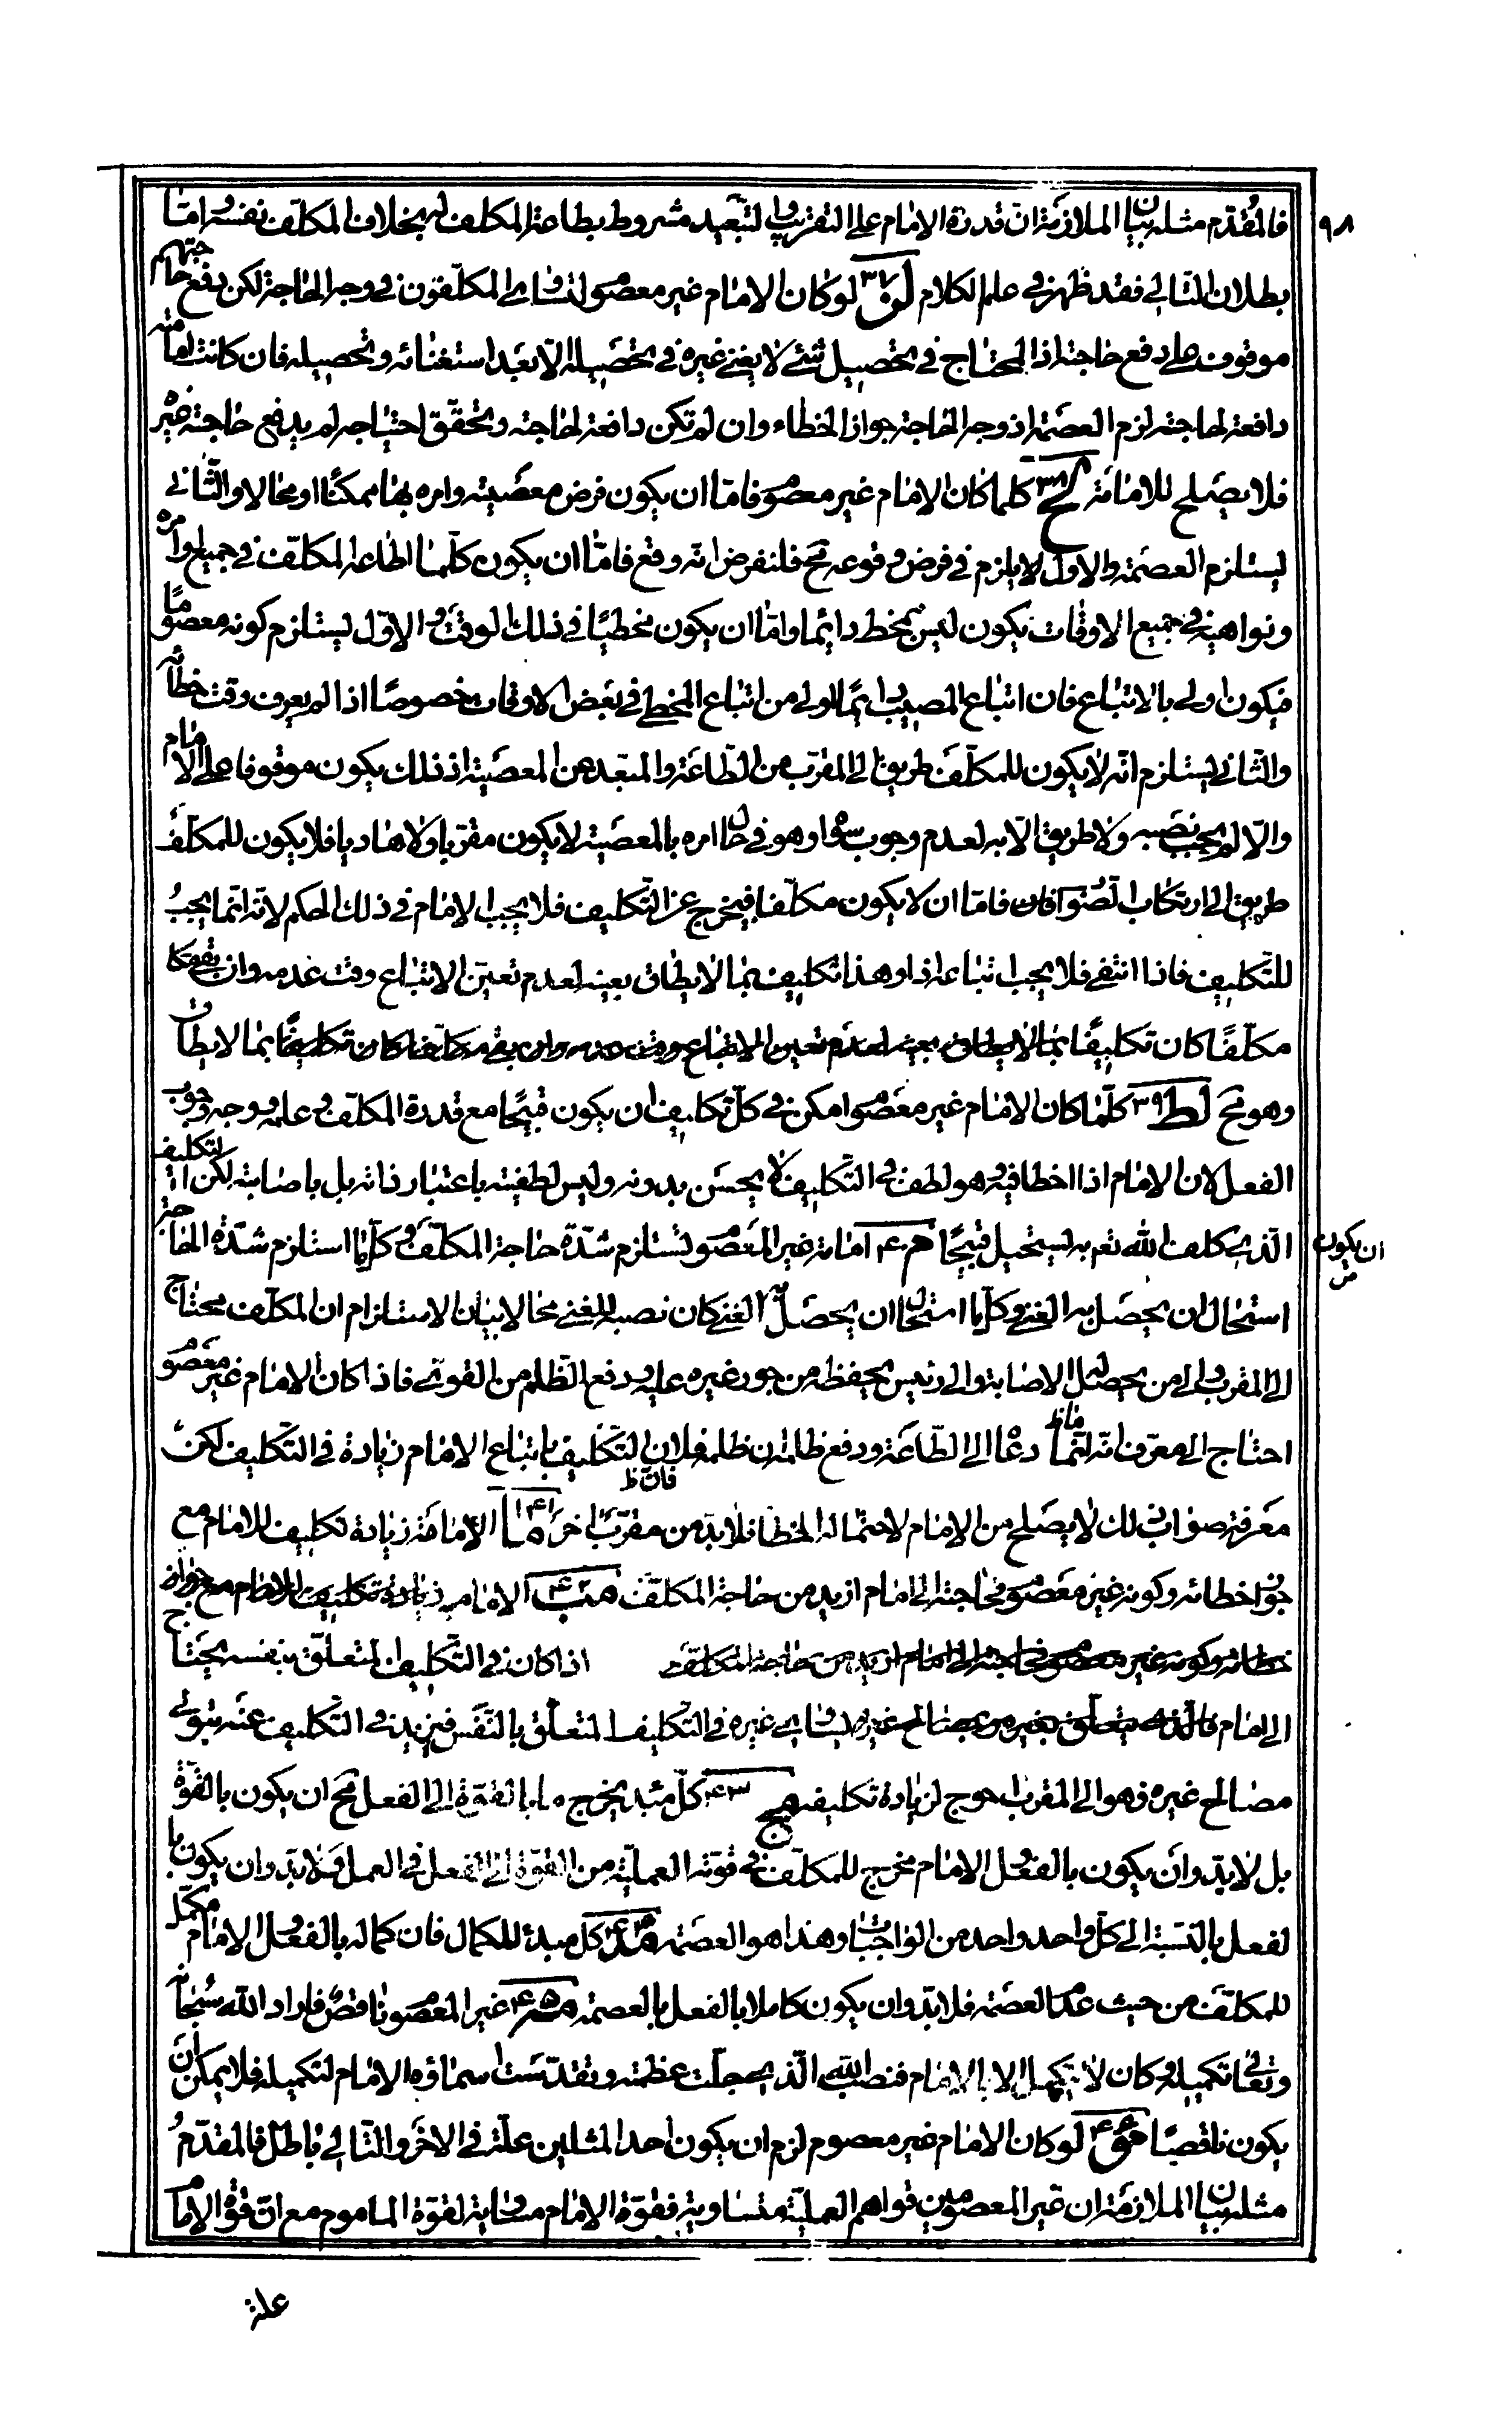 ٩٨
فالمقدّم مثله بيان الملازمة ان قدرة الامام على التقريب والتبعيد مشروط بطاعة المكلف له بخلاف المكلّف نفسه وامّا
بطلان التالى فقد ظهر فى علم الكلام لز ٣٧ لو كان الامام غير معصوم لتساوى المكلّفون فى وجه الحاجة لكن دفع حاجتهم
موقوف على دفع حاجته اذ المحتاج فى تحصيل شئ لا يغنى غيره فى تحصيله الّا بعد استغنائه وتحصيله فان كانت امامته
دافعة لحاجته لزم العصمة اذ وجه الحاجة جواز الخطاء وان لم تكن دافعة لحاجته وتحقّق احتياجه لم يدفع حاجة غيره
فلا يصلح للامامة لح ٣٨ كلما كان الامام غير معصوم فامّا ان يكون فرض معصيته وامره بها ممكنًا او محالا والثانى
يستلزم العصمة والاول لا يلزم فى فرض وقوعه مح فلنفرض انّه وقع فامّا ان يكون كلّما اطاعه المكلّف فى جميع اوامره
ونواهيه فى جميع الاوقات يكون ليس بمخط دائما وامّا ان يكون مخطيًا فى ذلك الوقت والاوّل يستلزم كونه معصومًا
فيكون اولى بالاتباع فان اتباع المصيب دائمًا اولى من اتباع المخطى فى بعض الاوقات خصوصًا اذا لم يعرف وقت خطائه
والثانى يستلزم انّه لا يكون للمكلّف طريق الى المقرّب من الطاعة والمبعّد عن المعصية اذ ذلك يكون موقوفا على الامام
والّا لم يجب نصبه ولا طريق الّا به لعدم وجوب سواه وهو فى حال امره بالمعصية لا يكون مقرّبا ولا هاديا فلا يكون للمكلّف
طريق الى ارتكاب الصّواب فامّا ان لا يكون مكلّفا فيخرج عن التكليف فلا يجب الامام فى ذلك الحكم لانّه انّما يجب
للتّكليف فاذا انتفى فلا يجب اتباعه اذا وهذا تكليف بما لا يطاق بعينه لعدم تعيّن الاتباع وقت عدمه وان بقى
مكلّفًا كان تكليفًا بما لا يطاق بعينه لعدم تعيين الاتباع وقت عدمه وان بقى مكلّفا كان تكليفًا بما لا يطاق
وهو مح لط ٣٩ كلّما كان الامام غير معصوم امكن فى كلّ تكليف ان يكون قبيحًا مع قدرة المكلّف وعلمه ووجه وجوب
الفعل لان الامام اذا اخطا فيه وهو لطف فى التكليف لا يحسن بدونه وليس لطفيته باعتبار ذاته بل باصابته لكن التكليف
الّذى كلف الله تعم به يستحيل قبيحًا م ٤٠ امامة غير المعصوم تستلزم شدّة حاجة المكلّف وكلّما استلزم شدّة الحاجة
ان يكون
استحال ان يحصل به الغنى وكلّما استحال ان يحصل به الغنى كان نصبه للغنى محالا بيان الاستلزام ان المكلّف محتاج
الى المقرب والى من يحصل له الاصابة والى رئيس يحفظه من جور غيره عليه ودفع الظلم من القوى فاذا كان الامام غير معصوم
احتاج الى معرف انّه انّما دعا الى الطّاعة ودفع ظالمه ظلمه فلان التكليف باتباع الامام زيادة فى التكليف لكن
معرفة صواب ذلك لا يصلح من الامام لاحتماله الخطا فلا بدّ من مقرّب اخر ما ٤١ الامامة زيادة تكليف للامام مع
جواز خطائه وكونه غير معصوم فحاجته الى امام ازيد من حاجة المكلّف مب ٤٢ الامامة زيادة تكليف للامام مع جواز
خطائه وكونه غير معصوم فحاجته الى امام ازيد من حاجة المكلّف اذا كان فى التّكليف المتعلّق بنفسه يحتاج
الى امام فالذى يتعلّق بغير من مصالح غيره يساوى غيره فى التكليف المتعلّق بالنّفس فيزيد فى التكليف عنه بتولى
مصالح غيره فهو الى المقرب احوج لزيادة تكليفه مج ٤٣ كلّ مبدء يخرج ما بالقوة الى الفعل مح ان يكون بالقوّة
بل لا بدّ وان يكون بالفعل والامام مخرج للمكلّف فى قوّته العمليّة من القوّة الى الفعل فى العمل فلا بدّ وان يكون با
لفعل بالنسبة الى كلّ واحد واحد من الواجبات وهذا هو العصمة مد ٤٤ كل مبدء للكمال فان كماله بالفعل والامام مكمل
للمكلّف من حيث عدم العصمة فلا بدّ وان يكون كاملا بالفعل بالعصمة مه ٤٥ غير المعصوم ناقص فاراد الله سبحانه
وتعالى تكميله وكان لا يتكمل الا بالامام فنصب الله الّذى جلّت عظمته وتقدّست اسماؤه الامام لتكميله فلا يمكن ان
يكون ناقصًا مو ٤٦ لو كان الامام غير معصوم لزم ان يكون احد المثلين علّة فى الاخر والتّالى باطل فالمقدّم
مثله بيان الملازمة ان غير المعصومين قواهم العمليّة متساوية فقوّة الامام مساوية لقوّة الماموم مع انّ قوّة الامام
علّة